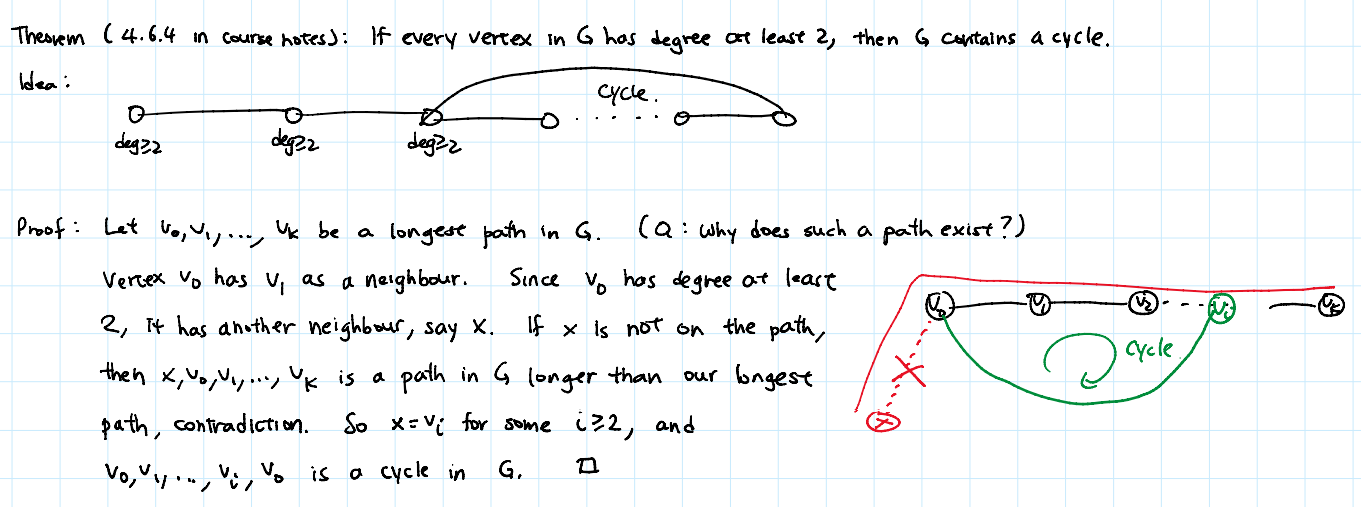 Theorem (4.6.4 in course notes): If every vertex in G has degree at least 2, then G contains a cycle.
Idea:
cycle.
deg≥2 deg≥2 deg≥2
Proof: Let v₀,v₁,..., vₖ be a longest path in G. (Q: why does such a path exist?)
Vertex v₀ has v₁ as a neighbour. Since v₀ has degree at least
2, it has another neighbour, say x. If x is not on the path,
then x,v₀,v₁,..., vₖ is a path in G longer than our longest
path, contradiction. So x=vᵢ for some i≥2, and
v₀,v₁,..., vᵢ, v₀ is a cycle in G. □
v₀ v₁ v₂ vᵢ vₖ
cycle
x